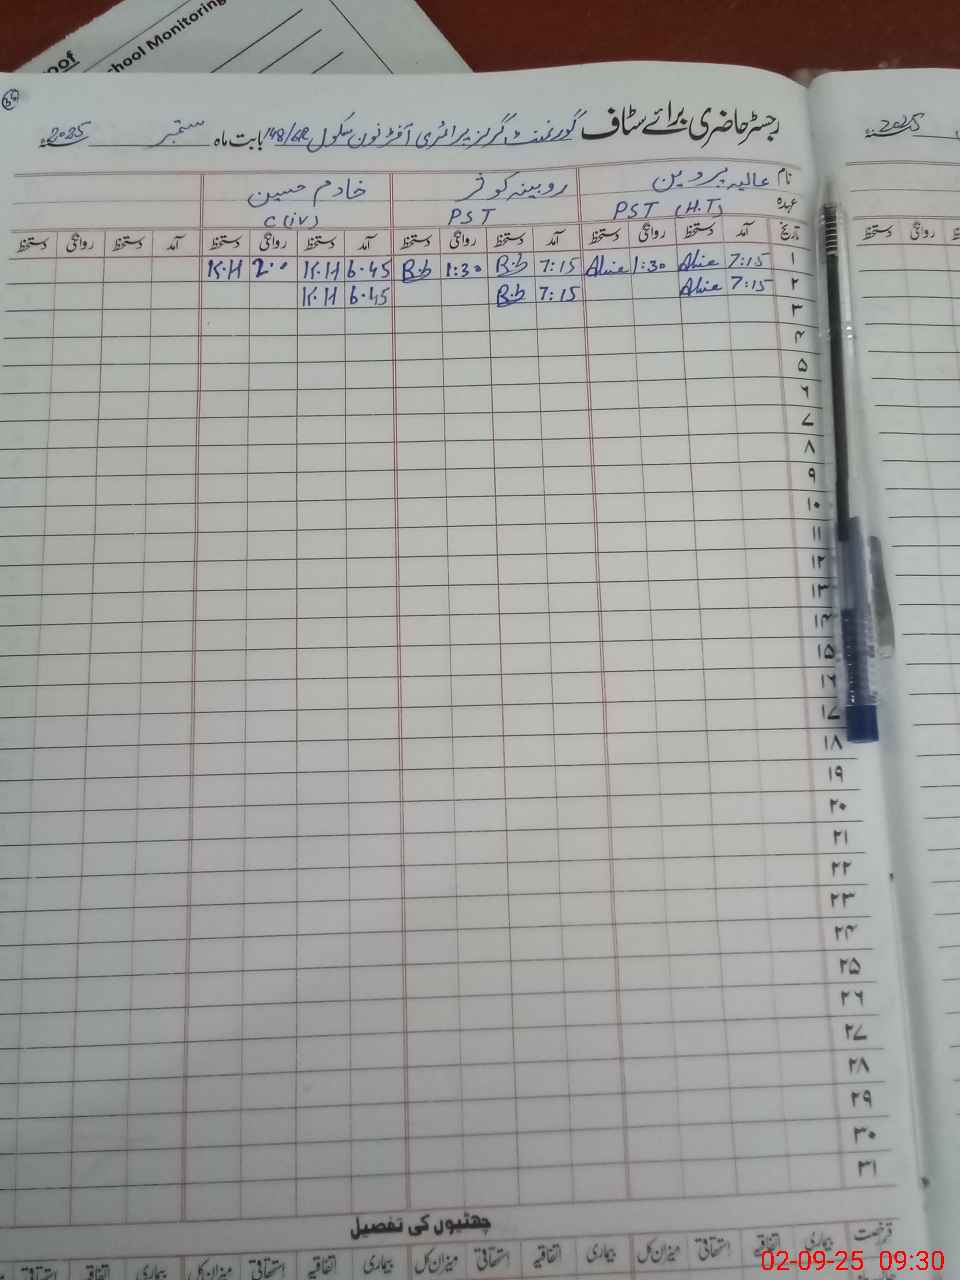 oof
hool Monitoring
رجسٹر حاضری برائے سٹاف گورنمنٹ گرلز پرائمری آفٹر نون سکول 48/GR بابت ماہ ستمبر 2025ء
2025ء
نام عالیہ پروین روبینہ کوثر خادم حسین
عہدہ PST (H.T) PST C(iv)
تاریخ آمد دستخط روانگی دستخط آمد دستخط روانگی دستخط آمد دستخط روانگی دستخط آمد دستخط روانگی دستخط
دستخط روانگی
۱ 7:15 Alia 1:30 Alia 7:15 B.b 1:30 B.b 6.45 K.H 2.00 K.H
۲ 7:15 Alia 7:15 B.b 6.45 K.H
۳
۴
۵
۶
۷
۸
۹
۱۰
۱۱
۱۲
۱۳
۱۴
۱۵
۱۶
۱۷
۱۸
۱۹
۲۰
۲۱
۲۲
۲۳
۲۴
۲۵
۲۶
۲۷
۲۸
۲۹
۳۰
۳۱
چھٹیوں کی تفصیل
رخصت بیماری اتفاقیہ استحقاقی میزان کل بیماری اتفاقیہ استحقاقی میزان کل بیماری اتفاقیہ استحقاقی میزان کل بیماری اتفاقیہ استحقاقی
02-09-25 09:30